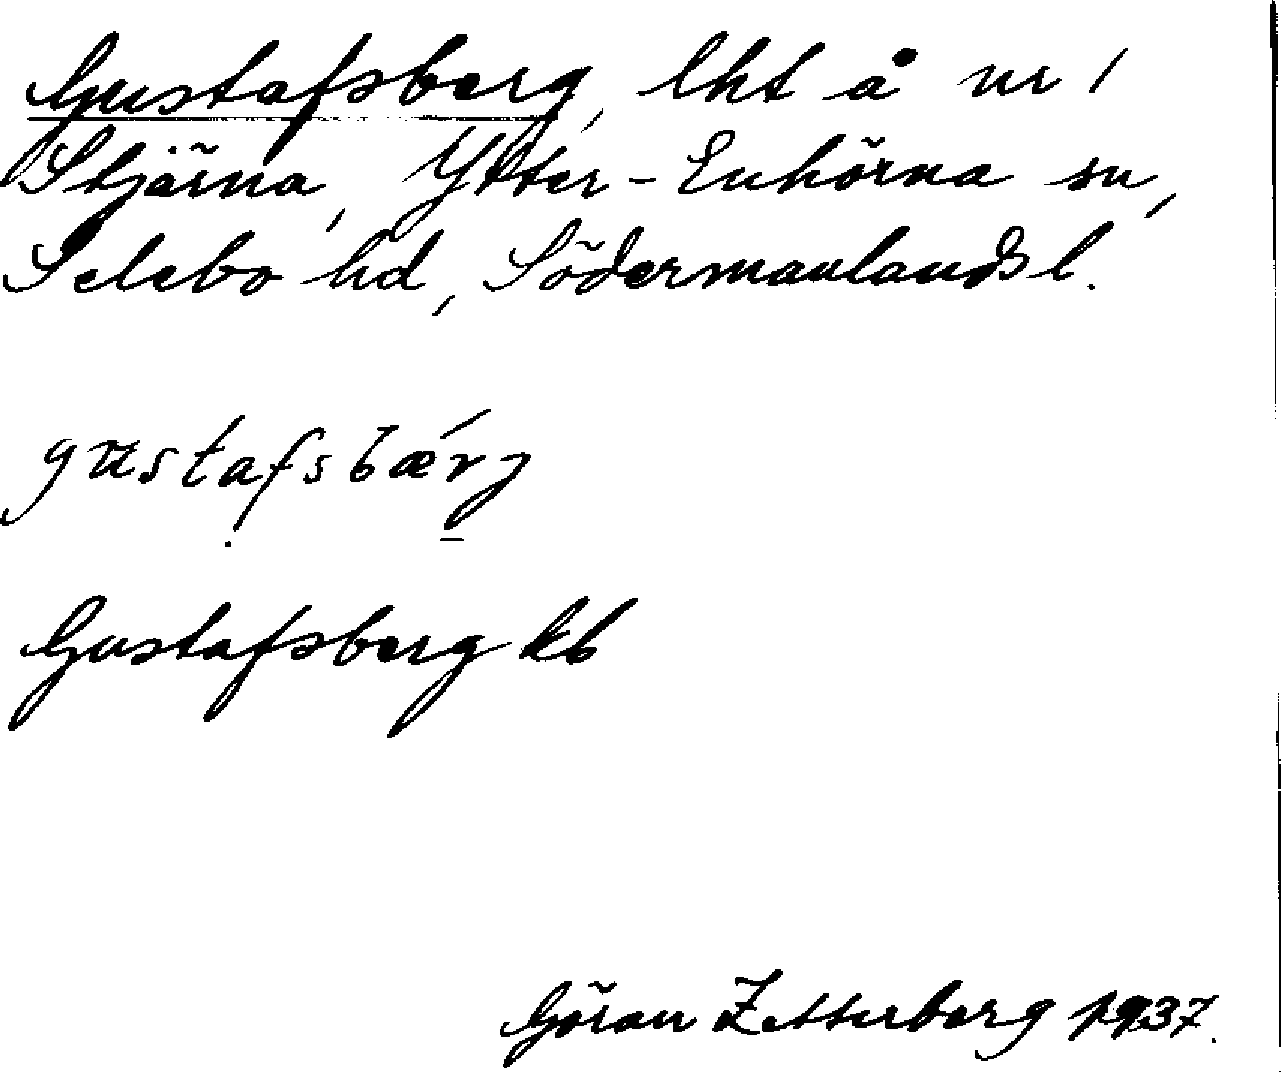 Gustafsberg, lht å nr 1
Stjärna, Ytter-Enhörna sn,
Selebo hd, Södermanlands l.
gustafsbǽrj
Gustafsberg kb
Göran Zetterberg 1937.